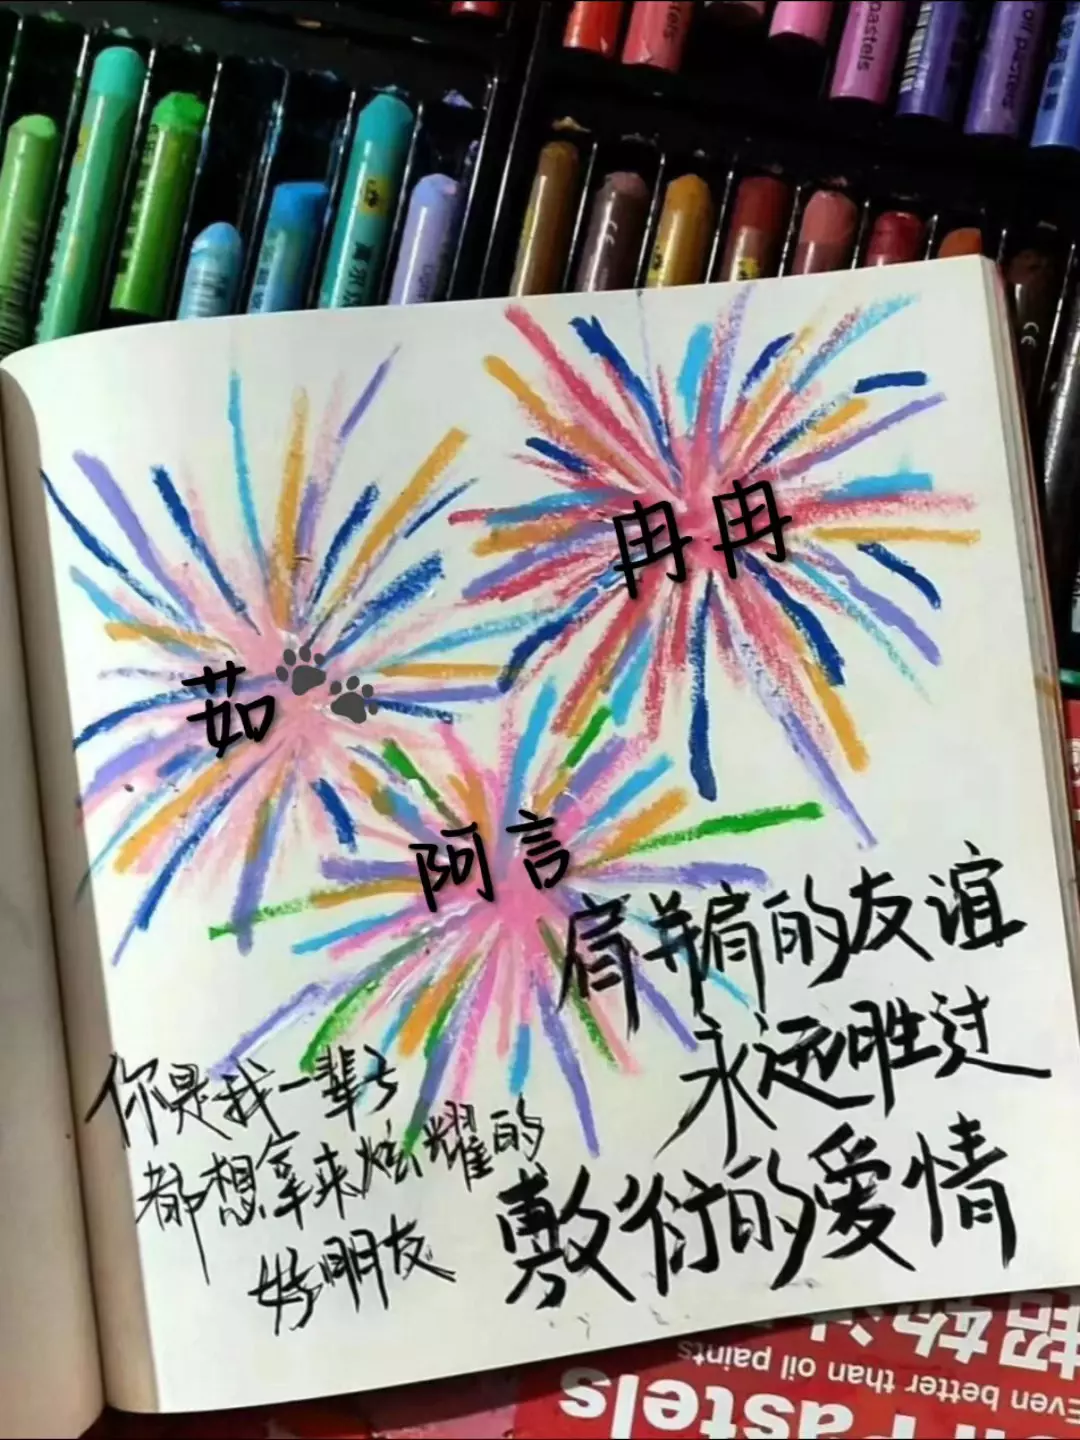 pastels
oil pastels
冉冉
茹
阿言
肩并肩的友谊
永远胜过
敷衍的爱情
你是我一辈子
都想拿来炫耀的
好朋友
Even better than oil paints
Pastels